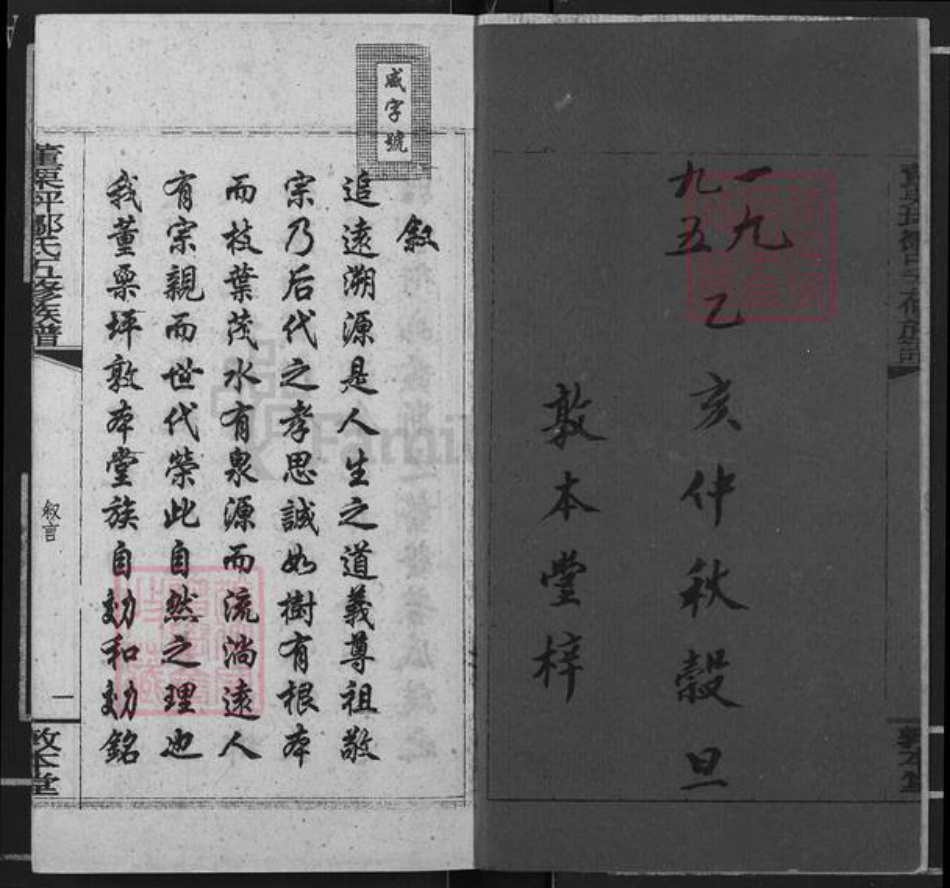 一九九五
乙亥仲秋穀旦
敦本堂梓
咸字號
敘
追遠溯源是人生之道義尊祖敬
宗乃后代之孝思誠如樹有根本
而枝葉茂水有泉源而流淌遠人
有宗親而世代榮此自然之理也
我董栗坪敦本堂族自効和効銘
董栗坪鄒氏五修族譜
敘言
一
敦本堂